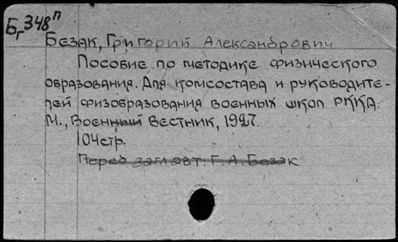 Бг348п
Безак, Григорий Александрович
Пособие по методике физического
образования. Для комсостава и руководите-
лей физобразования военных школ РККА.
М., Военный Вестник, 1927.
104стр.
Перед заглавт: Г. А. Безак